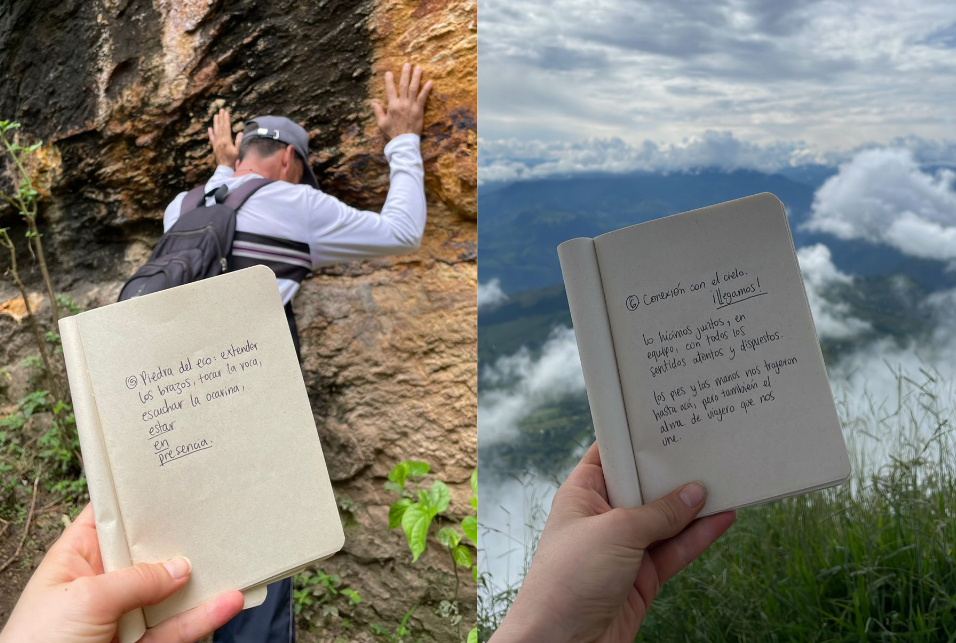 ⑤ Piedra del eco: extender
los brazos, tocar la roca,
escuchar la ocarina,
estar
en
presencia.
⑥ Conexión con el cielo.
¡Llegamos!
Lo hicimos juntos, en
equipo, con todos los
sentidos atentos y dispuestos.
Los pies y las manos nos trajeron
hasta acá, pero también el
alma de viajero que nos
une.